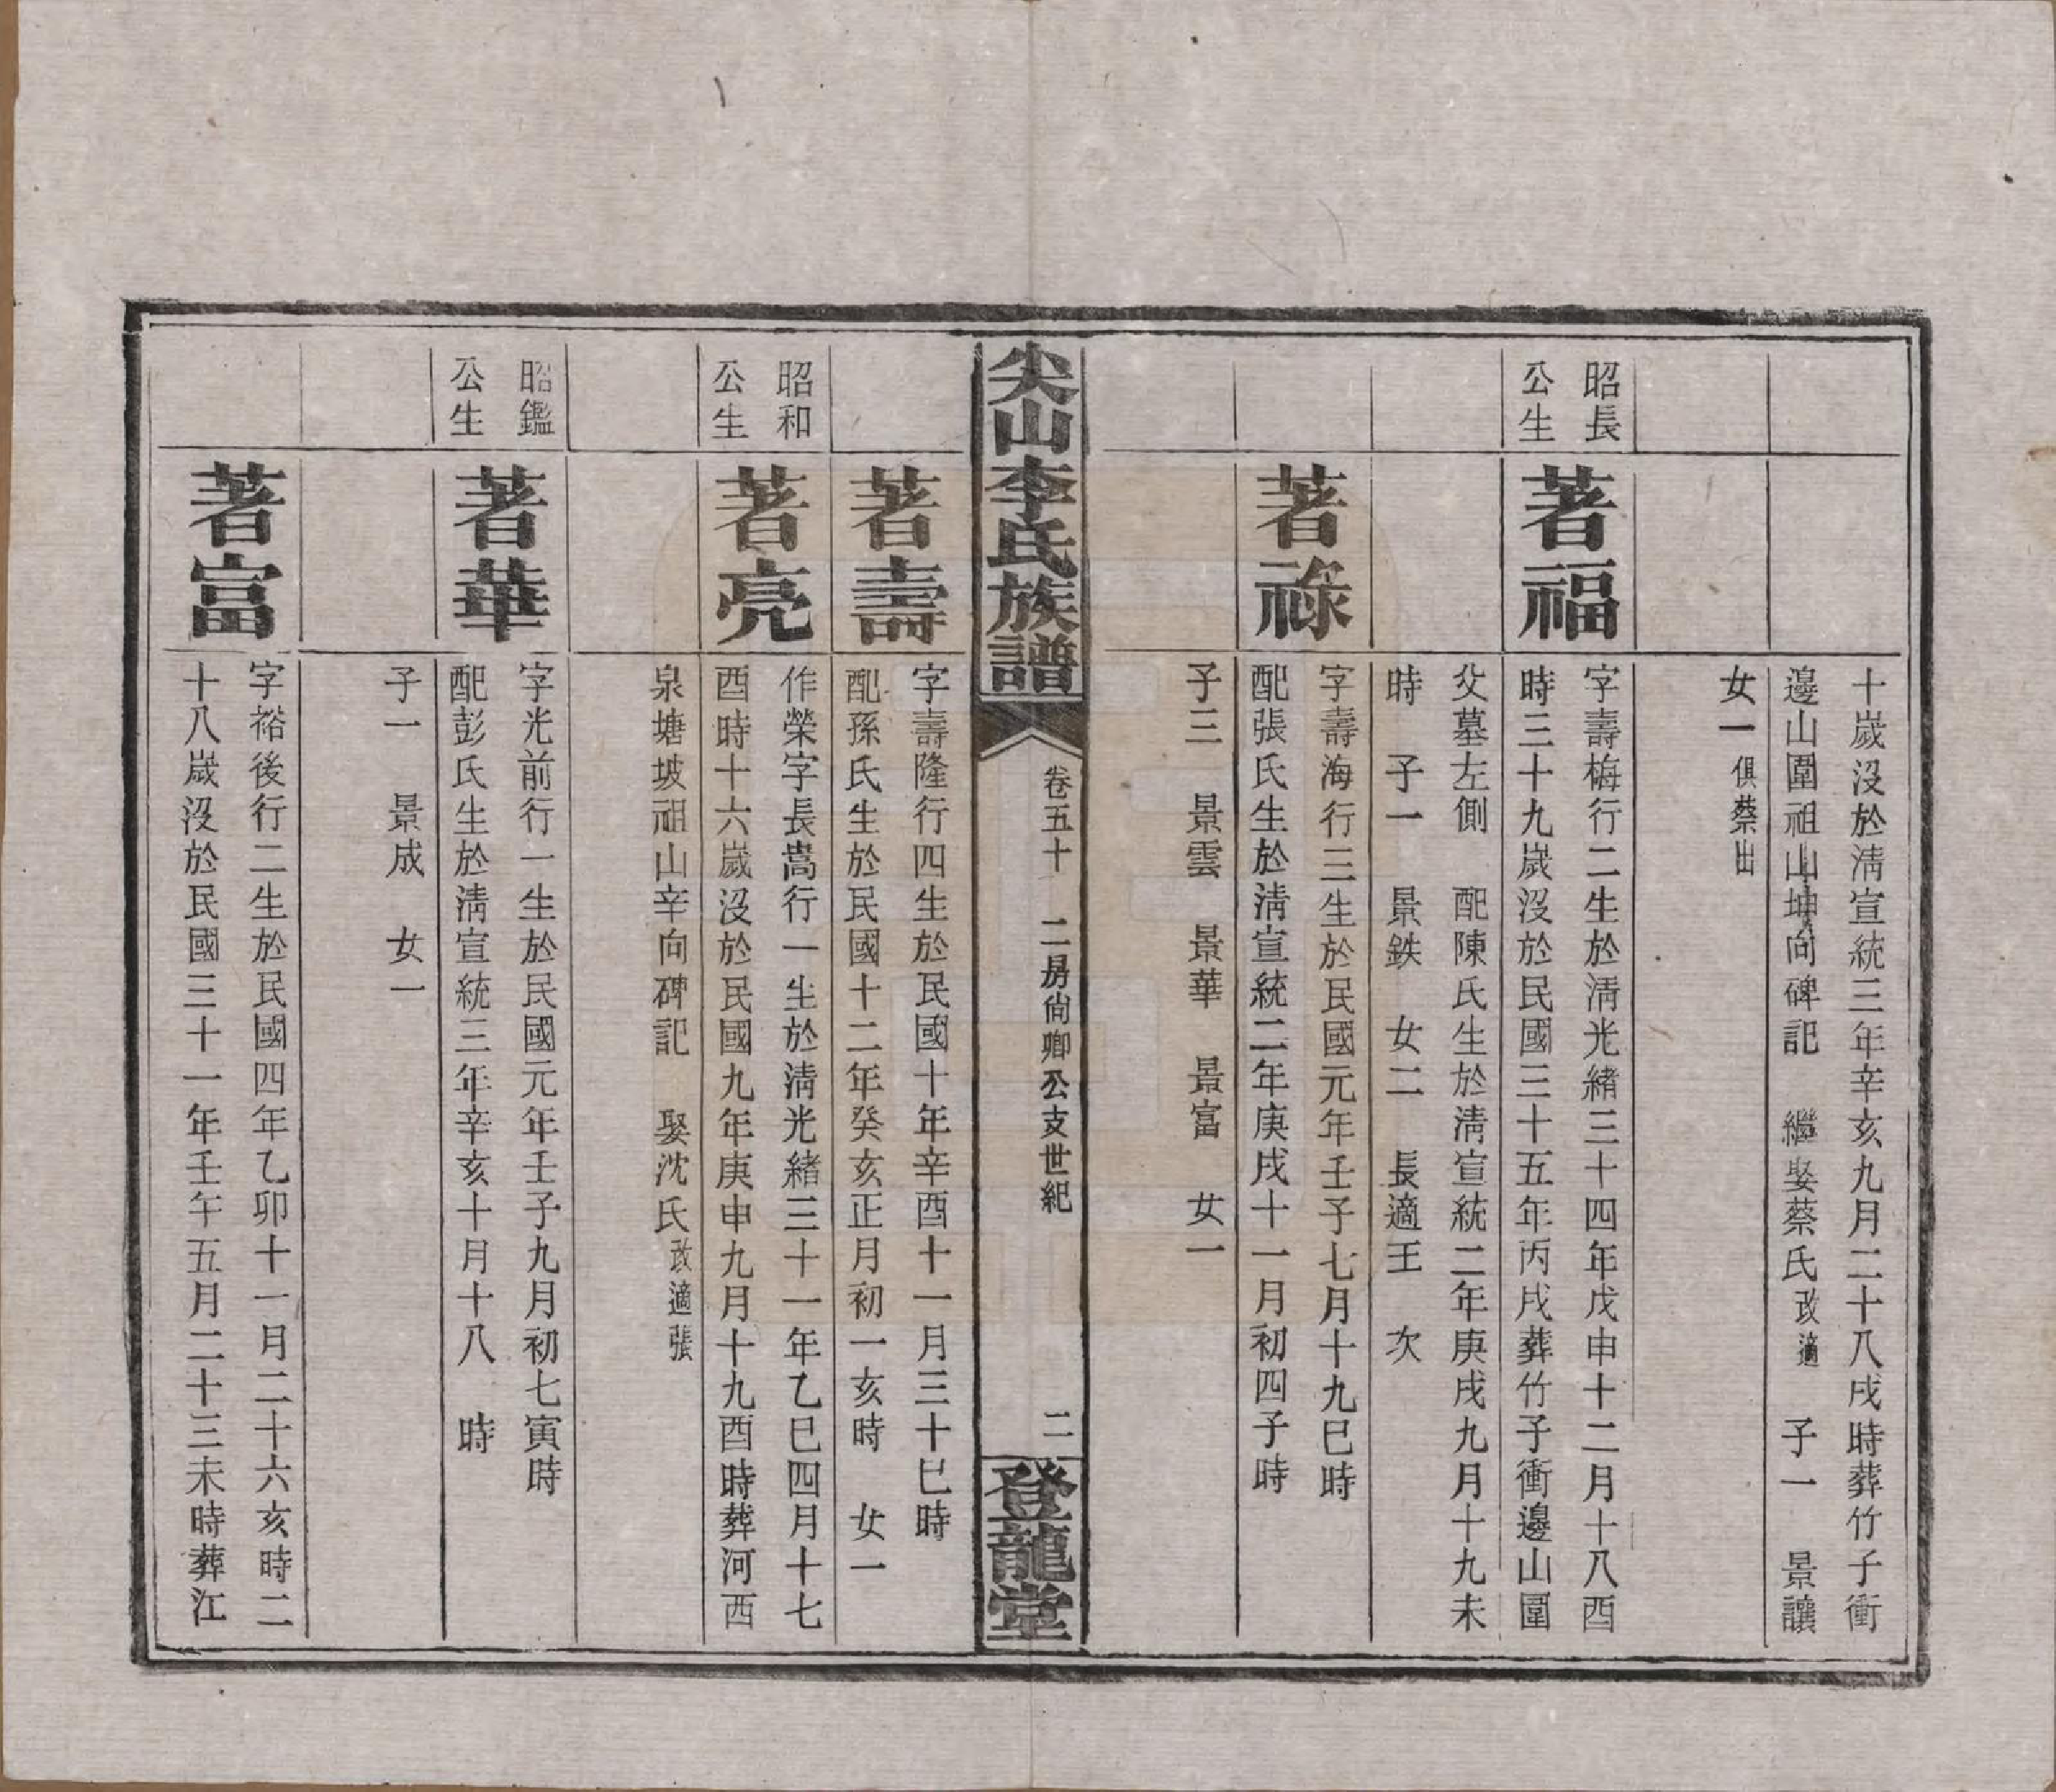 十歲沒於淸宣統三年辛亥九月二十八戌時葬竹子衝
邊山圍祖山坤向碑記　繼娶蔡氏改適　子一　景讓
女一俱蔡出
昭長
公生
著福
字壽梅行二生於淸光緖三十四年戊申十二月十八酉
時三十九歲沒於民國三十五年丙戌葬竹子衝邊山圍
父墓左側　配陳氏生於淸宣統二年庚戌九月十九未
時　子一　景鉄　女二　長適王　次
著祿
字壽海行三生於民國元年壬子七月十九巳時
配張氏生於淸宣統二年庚戌十一月初四子時
子三　景雲　景華　景富　女一
尖山李氏族譜
卷五十　二房尙卿公支世紀
二
登龍堂
著壽
字壽隆行四生於民國十年辛酉十一月三十巳時
配孫氏生於民國十二年癸亥正月初一亥時　女一
昭和
公生
著亮
作榮字長嵩行一生於淸光緖三十一年乙巳四月十七
酉時十六歲沒於民國九年庚申九月十九酉時葬河西
泉塘坡祖山辛向碑記　娶沈氏改適張
昭鑑
公生
著華
字光前行一生於民國元年壬子九月初七寅時
配彭氏生於淸宣統三年辛亥十月十八　時
子一　景成　女一
著富
字裕後行二生於民國四年乙卯十一月二十六亥時二
十八歲沒於民國三十一年壬午五月二十三未時葬江